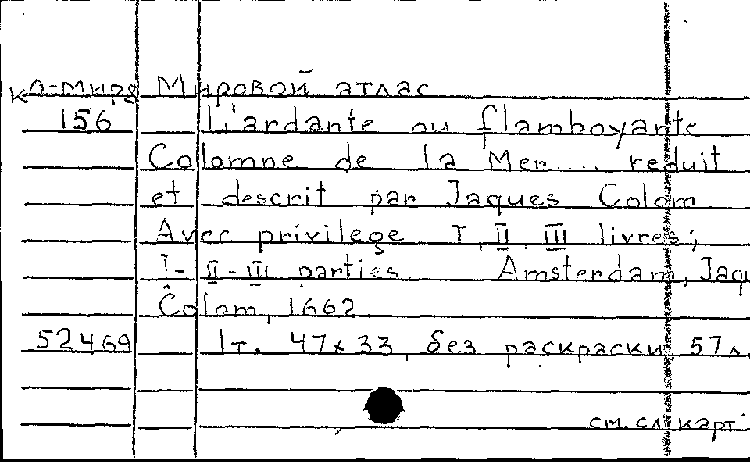 К0-мира Мировой атлас
156 L'ardante ou flamboyante
Colomne de la Mer... reduit
et descrit par Jaques Colom
Avec privilege I, II, III livres;
I-II-III parties. Amsterdam, Jaq
Colom, 1662
52469 1т. 47x33, без раскраски 57л.
см. сл. карт